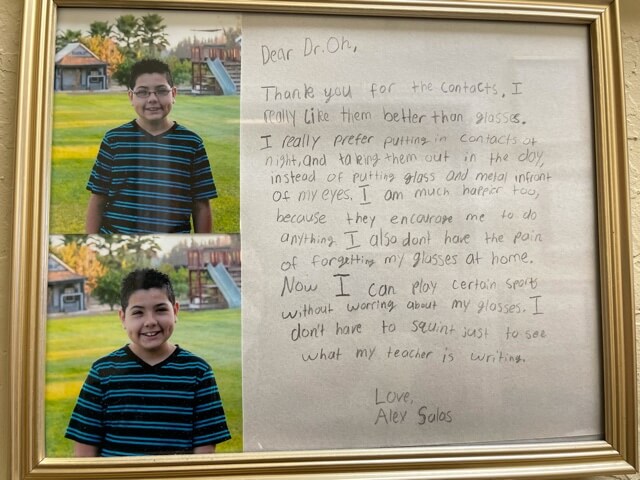 Dear Dr. Oh,
Thank you for the contacts. I
really like them better than glasses.
I really prefer putting in contacts at
night, and taking them out in the day,
instead of putting glass and metal infront
of my eyes. I am much happier too,
because they encourage me to do
anything. I also dont have the pain
of forgetting my glasses at home.
Now I can play certain sports
without worring about my glasses. I
don't have to squint just to see
what my teacher is writing.
Love,
Alex Salas